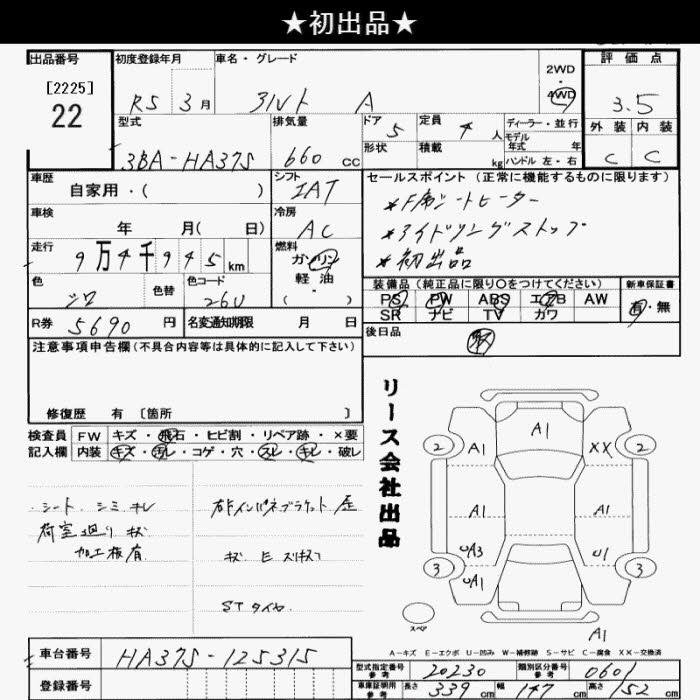 ★初出品★
出品番号 初度登録年月 車名・グレード 2WD・4WD 評価点
[2225]
22
R5 3月 アルト A 3.5
型式 排気量 ドア 5 定員 4人 ディーラー・並行 外装 内装
モデル年式 年
3BA-HA37S 660cc 形状 積載 kg ハンドル 左・右 C C
車歴 シフト セールスポイント(正常に機能するものに限ります)
自家用・( ) IAT *F席シートヒーター
車検 冷房 *アイドリングストップ
年 月( 日) AC *初出品
走行 燃料
9万4千945km ガソリン
軽油
・( )
色 色替 色コード 装備品(純正品に限り○をつけてください) 新車保証書
シロ 26U PS PW ABS エアB AW 有・無
SR ナビ TV カワ
R券 5690円 名変通知期限 月 日 後日品
注意事項申告欄(不具合内容等は具体的に記入して下さい)
修復歴 有〔箇所 〕
リース会社出品
検査員記入欄 FW キズ・飛石・ヒビ割・リペア跡・×要
内装 キズ・汚レ・コゲ・穴・スレ・キレ・破レ
シート シミ キレ
荷室廻り
加工 有
STタイヤ
A1
2 A1 XX 2
A1 A1
UA3 U1
3 UA1 3
スペア
A1
A-キズ E-エクボ U-凹み W-補修跡 S-サビ C-腐食 XX-交換済
車台番号 HA37S-125315
登録番号
型式指定番号 参考 20230 類別区分番号 参考 0601
車庫証明用 参考 長さ 339cm 幅 147cm 高さ 152cm